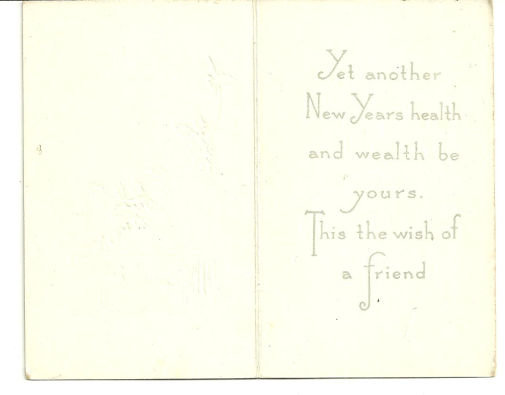 Yet another
New Years health
and wealth be
yours.
This the wish of
a friend